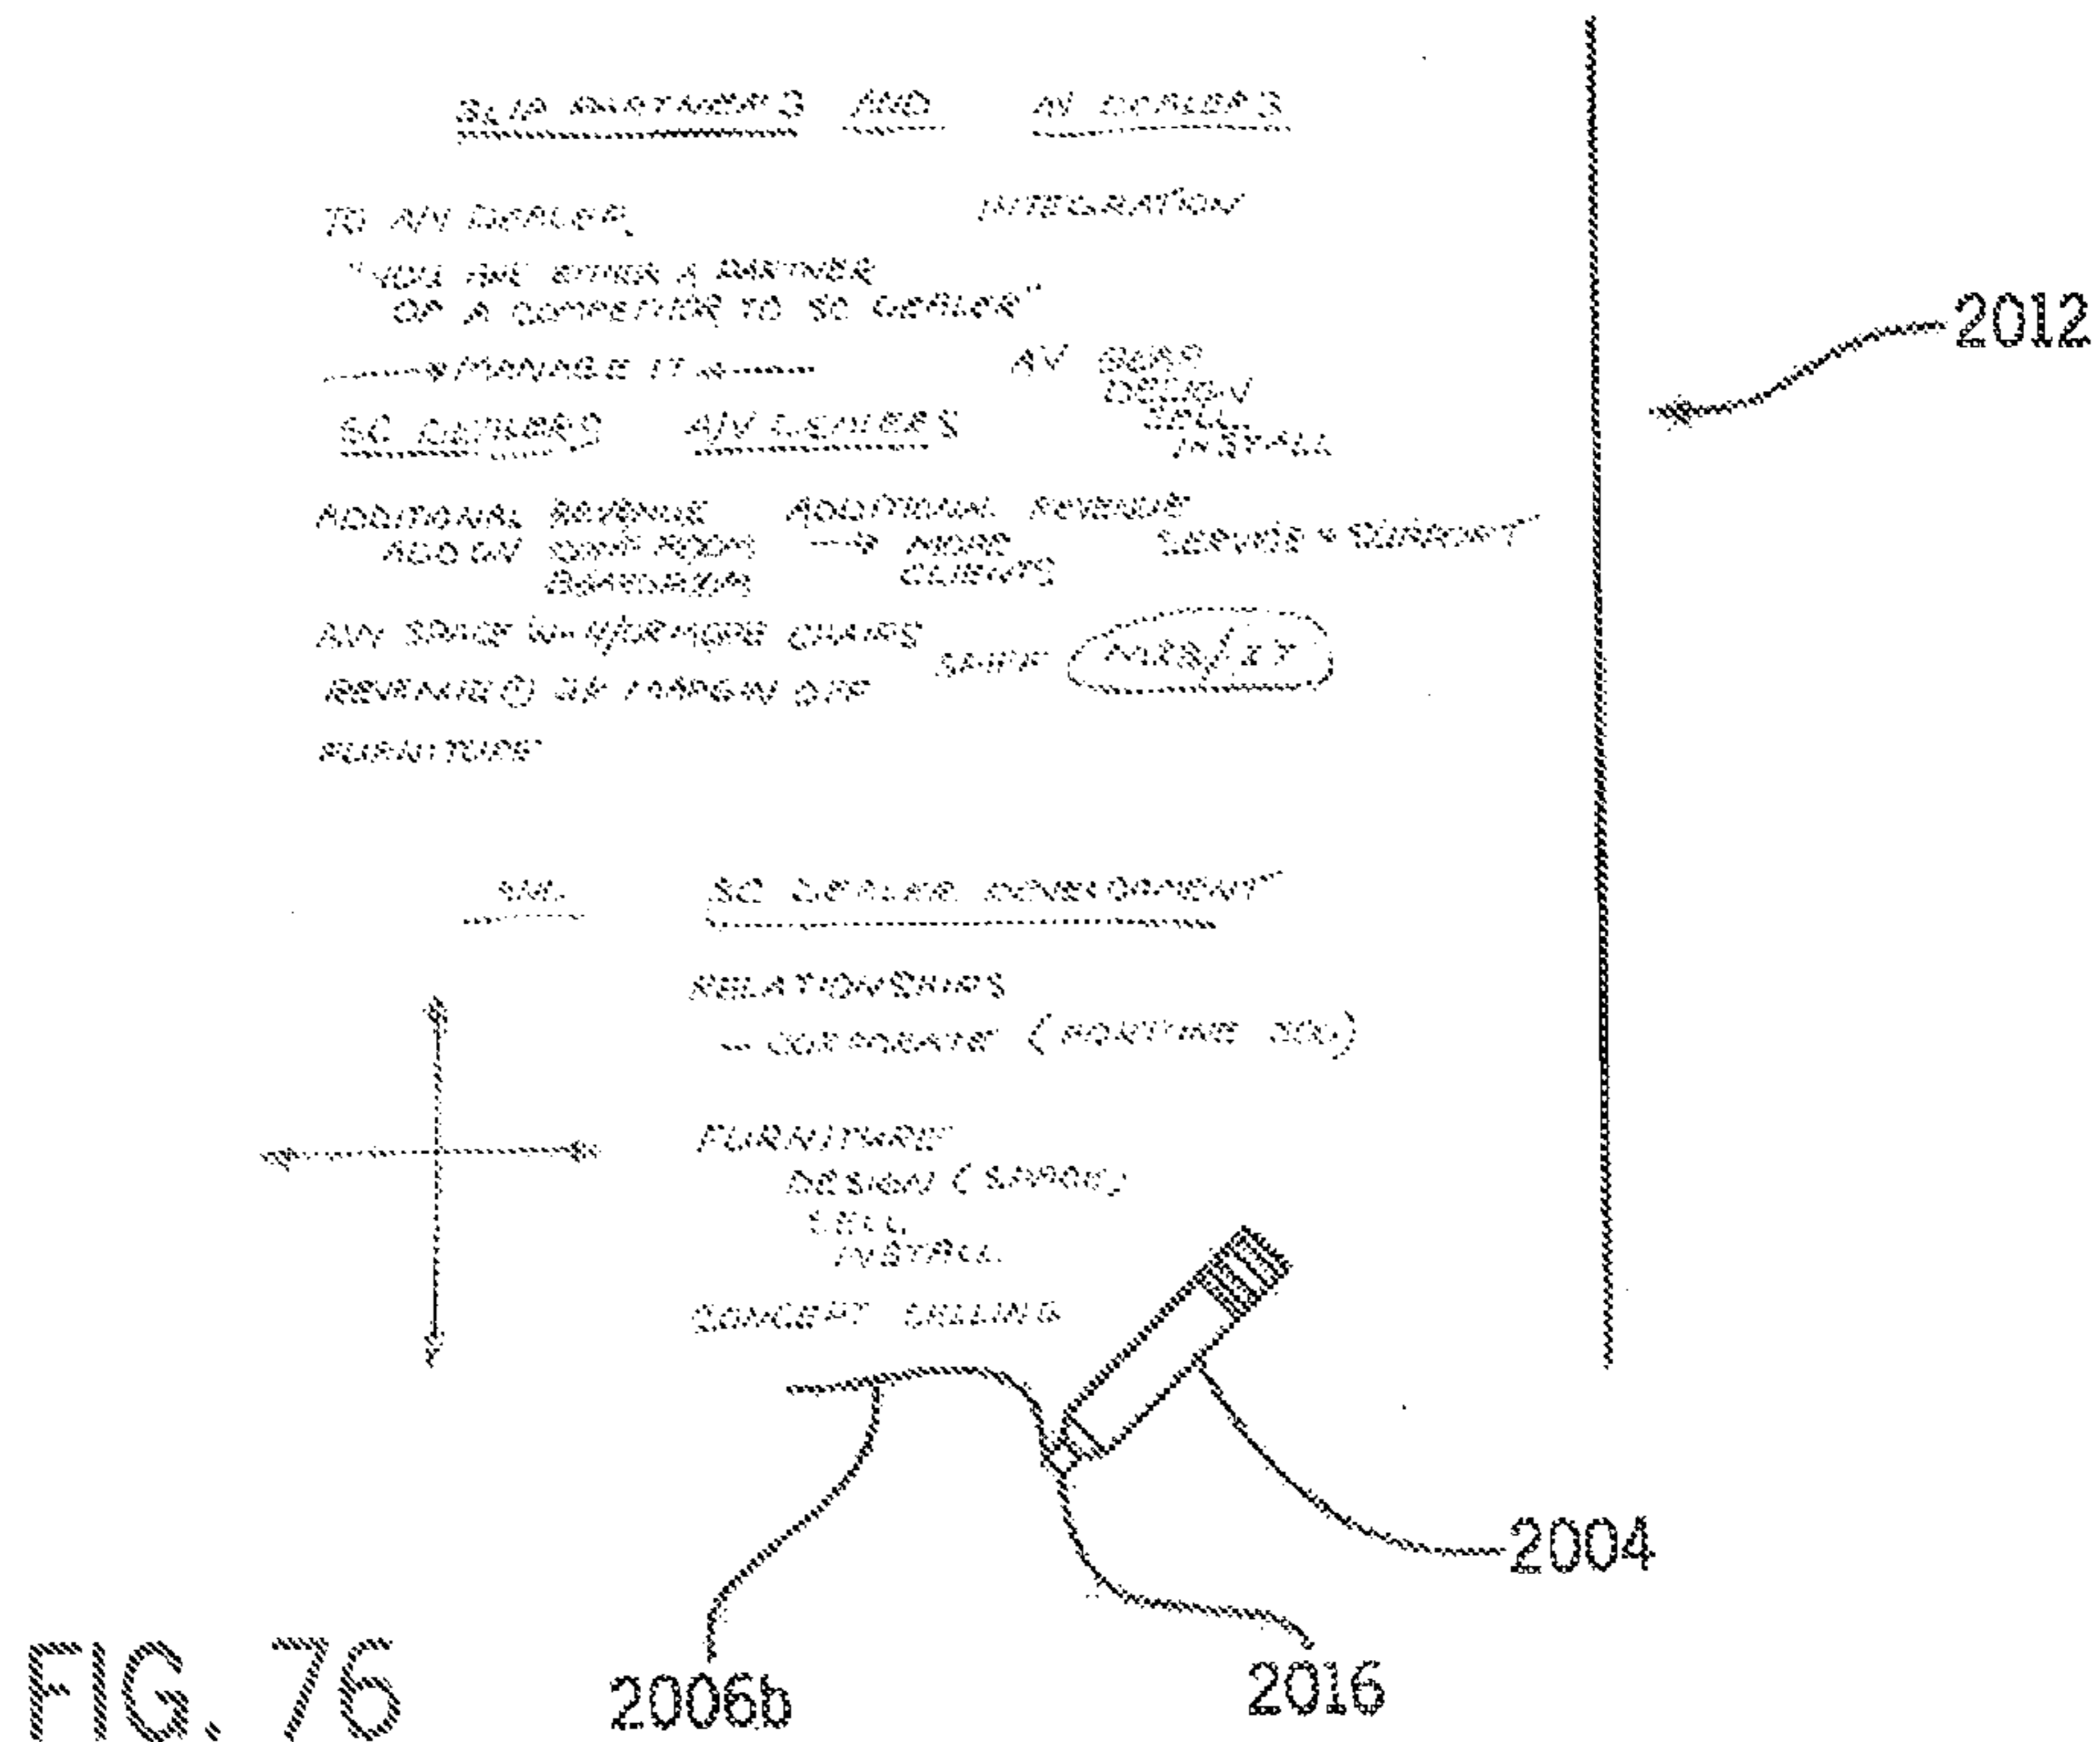 AND AV DEALERS
TO A/V DEALER, INTEGRATION
"YOU ARE EITHER A PARTNER
OR A COMPETITOR TO SC DEALER"
MANAGE IT
AV
DESIGN
SELL
INSTALL
SC DEALERS A/V DEALERS
ADDITIONAL REVENUE ADDITIONAL REVENUE
ADD ON MORE
CLIENTS
SERVICE + SUPPORT
ANY SPACE OR MORE CHAIRS
REVENUE MARGIN OFF
FURNITURE
2012
SC DEALER DEVELOPMENT
RELATIONSHIPS
- CORPORATE (FORTUNE 500)
FURNITURE
DESIGN (SPACE)
SELL
INSTALL
CONCEPT SELLING
2004
2006b
2016
FIG. 76